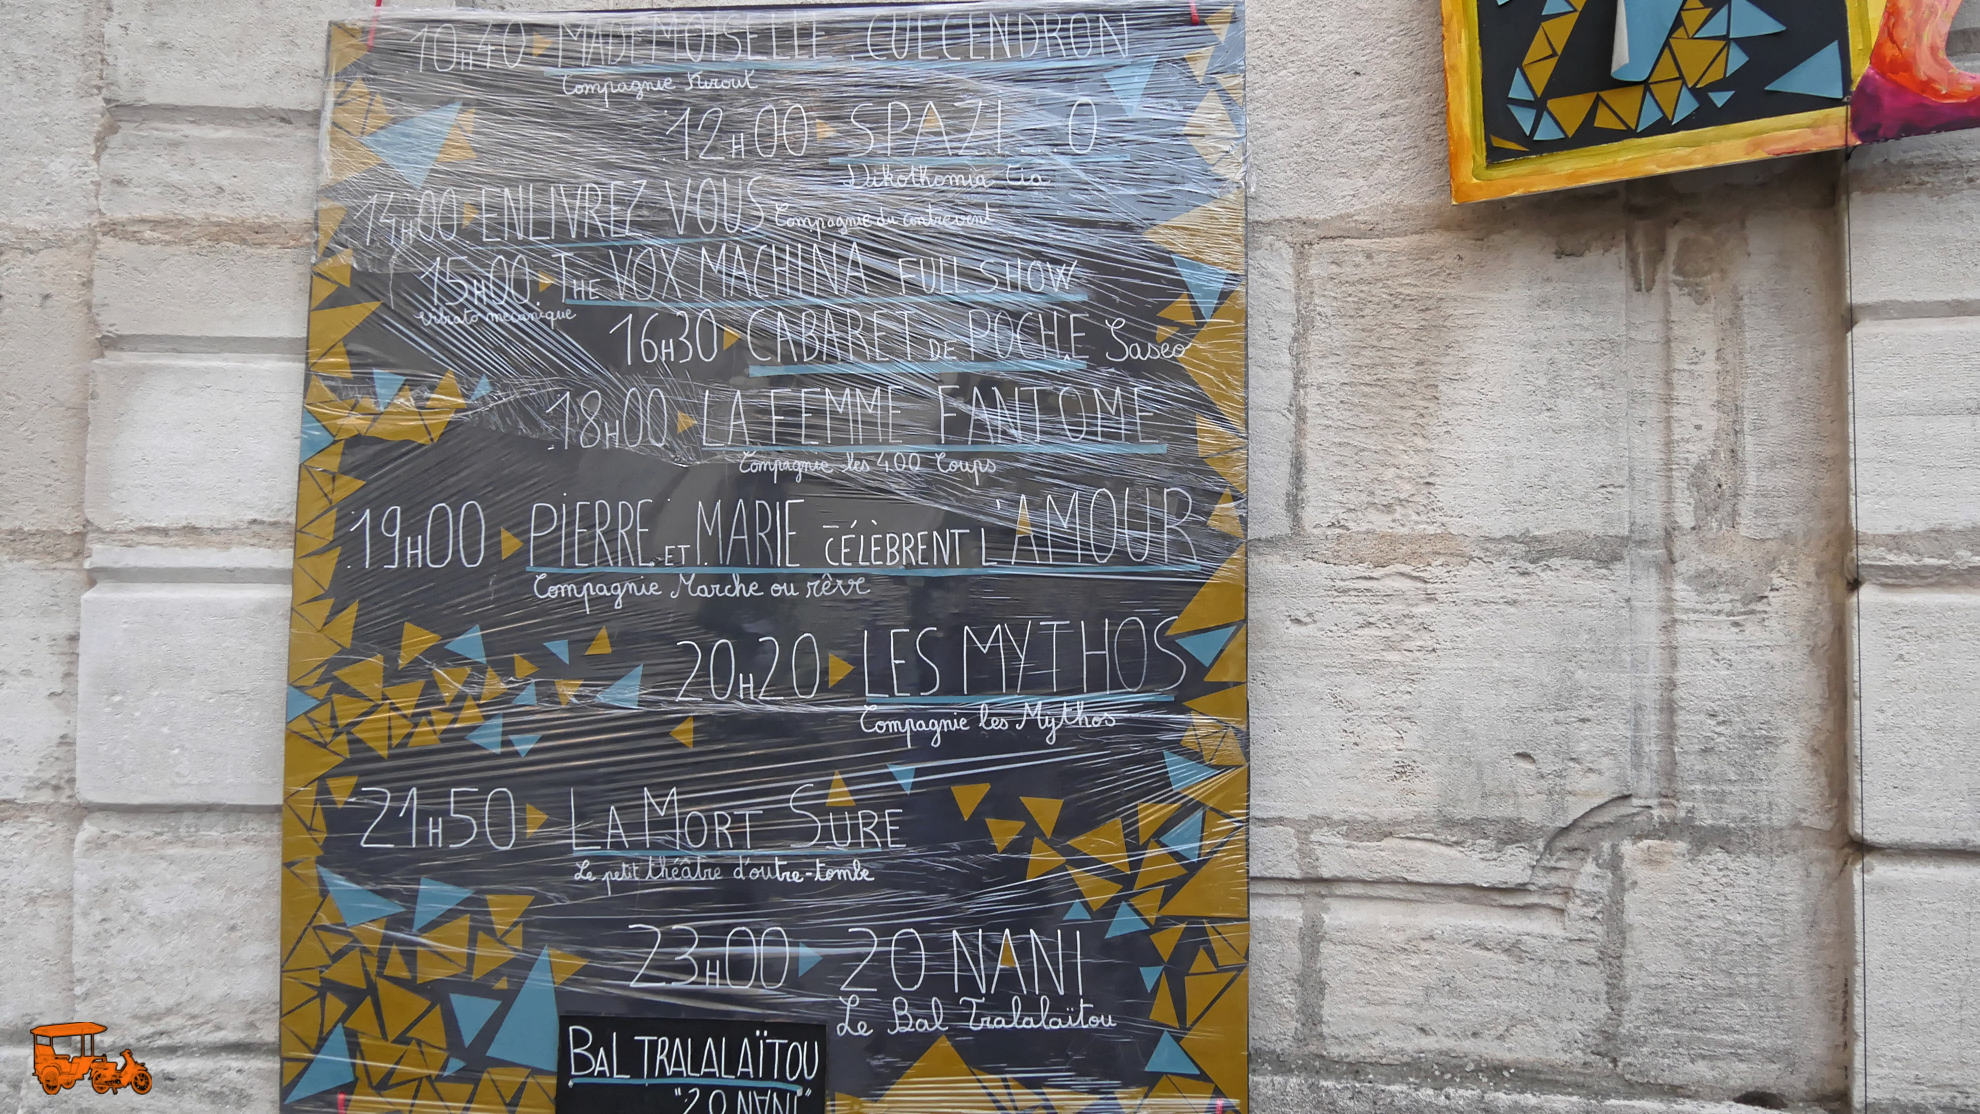 10H40 MADEMOISELLE CULCENDRON
Compagnie Kirout
12H00 SPAZI O
Nikolkomia Cia
14H00 ENLIVREZ VOUS Compagnie du contrevent
15H00 THE VOX MACHINA FULL SHOW
Vibrato mécanique
16H30 CABARET DE POCHE Saseo
18H00 LA FEMME FANTOME
Compagnie les 400 Coups
19H00 PIERRE ET MARIE CÉLÈBRENT L'AMOUR
Compagnie Marche ou rêve
20H20 LES MYTHOS
Compagnie les Mythos
21H50 LA MORT SURE
Le petit théâtre d'outre-tombe
23H00 20 NANI
Le Bal Tralalaïtou
BAL TRALALAÏTOU
"20 NANI"